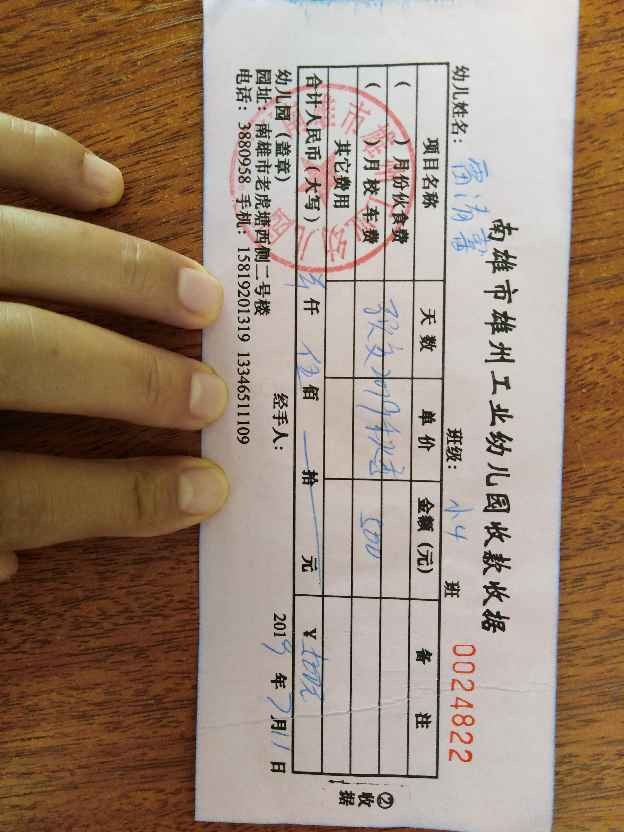 南雄市雄州工业幼儿园收款收据
幼儿姓名： 班级：小4 班 0024822
项目名称 天数 单价 金额（元） 备注
（ ）月份伙食费
（ ）月校车费 500
其它费用
合计人民币（大写） 仟 伍 佰 拾 元 ￥500元
幼儿园（盖章） 经手人： 2019 年 7 月 11 日
园址：南雄市老虎塘西侧二号楼
电话：3880958 手机：15819201319 13346511109
②收据